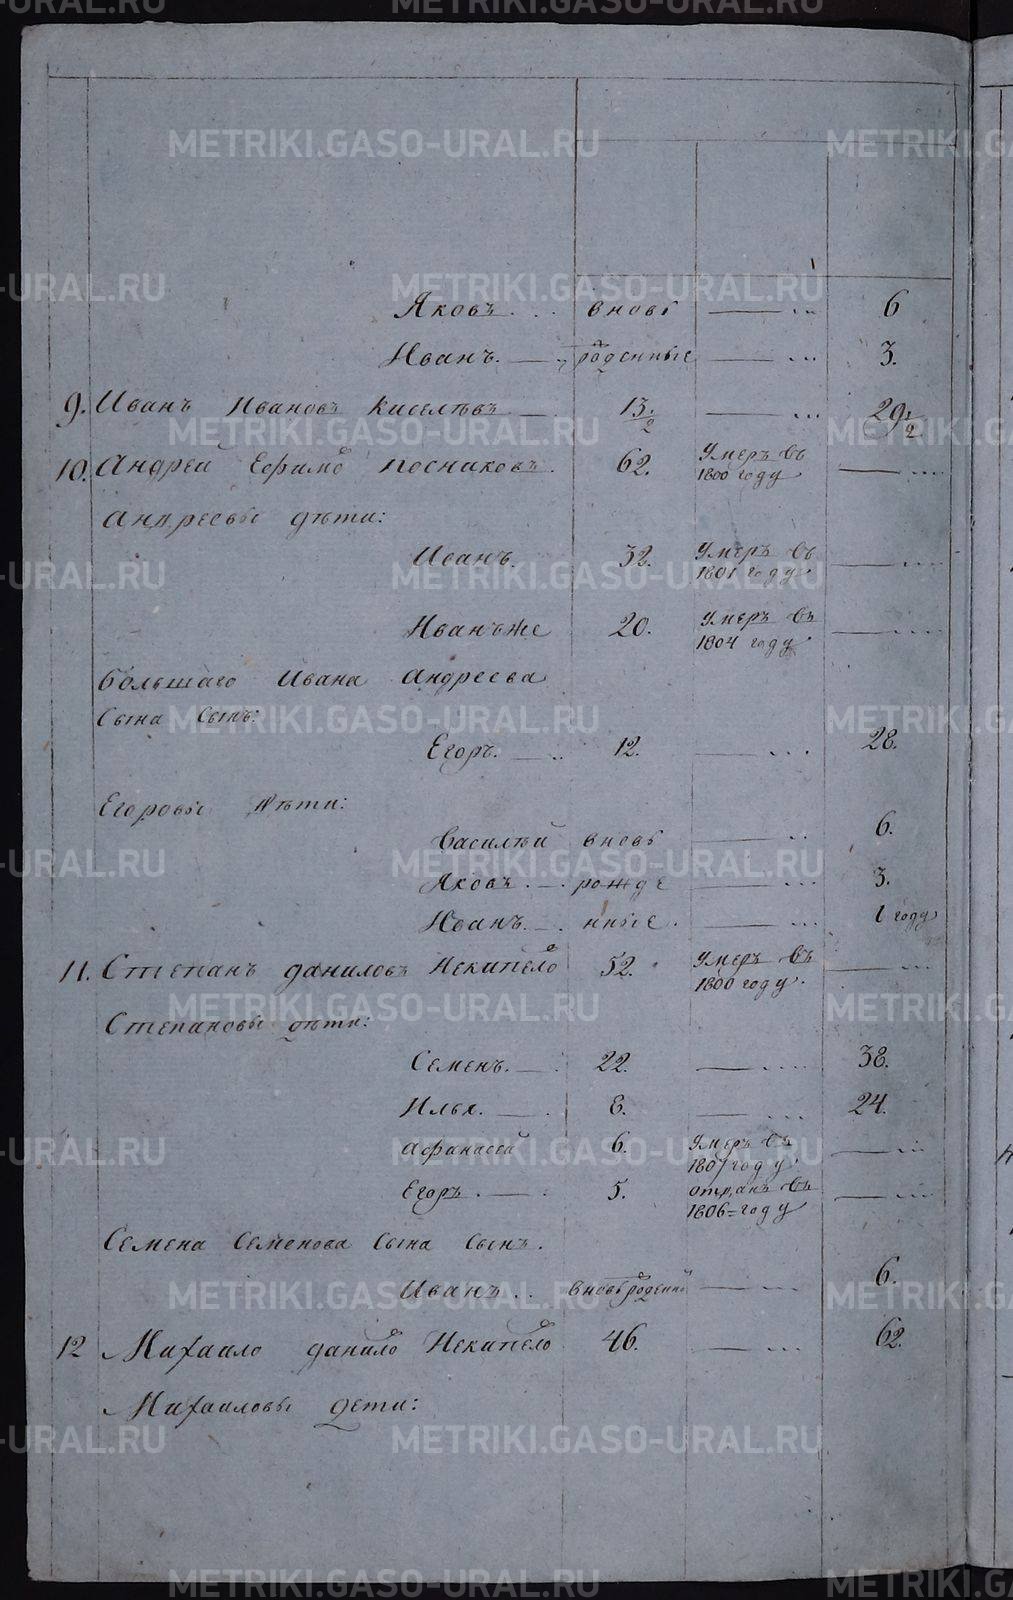 Яковъ. вновь 6
Иванъ. роденные 3.
9. Иванъ Ивановъ Киселѣвъ 13.½ 29½
10. Андрей Ефимо Посниковъ. 62. Умеръ въ
1800 году
Андреевы дѣти:
Иванъ. 32. Умеръ въ
1801 году
Иванъ же 20. Умеръ въ
1804 году
Большаго Ивана Андреева
Сына Сынъ:
Егоръ. 12. 28.
Егоровы дѣти:
Василѣй вновь 6.
Яковъ. рожде 3.
Иванъ. нные. 1 году
11. Степанъ Даниловъ Некипело 52. Умеръ въ
1800 году.
Степановы дѣти:
Семенъ. 22. 38.
Илья. 8. 24.
Афанасей 6. Умеръ въ
1807 году
Егоръ. 5. отданъ въ
1806 = году
Семена Семенова Сына Сынъ.
Иванъ. вновь 6.
12 Михаило Данило Некипело 46. 62.
Михаиловы дети:
METRIKI.GASO-URAL.RU